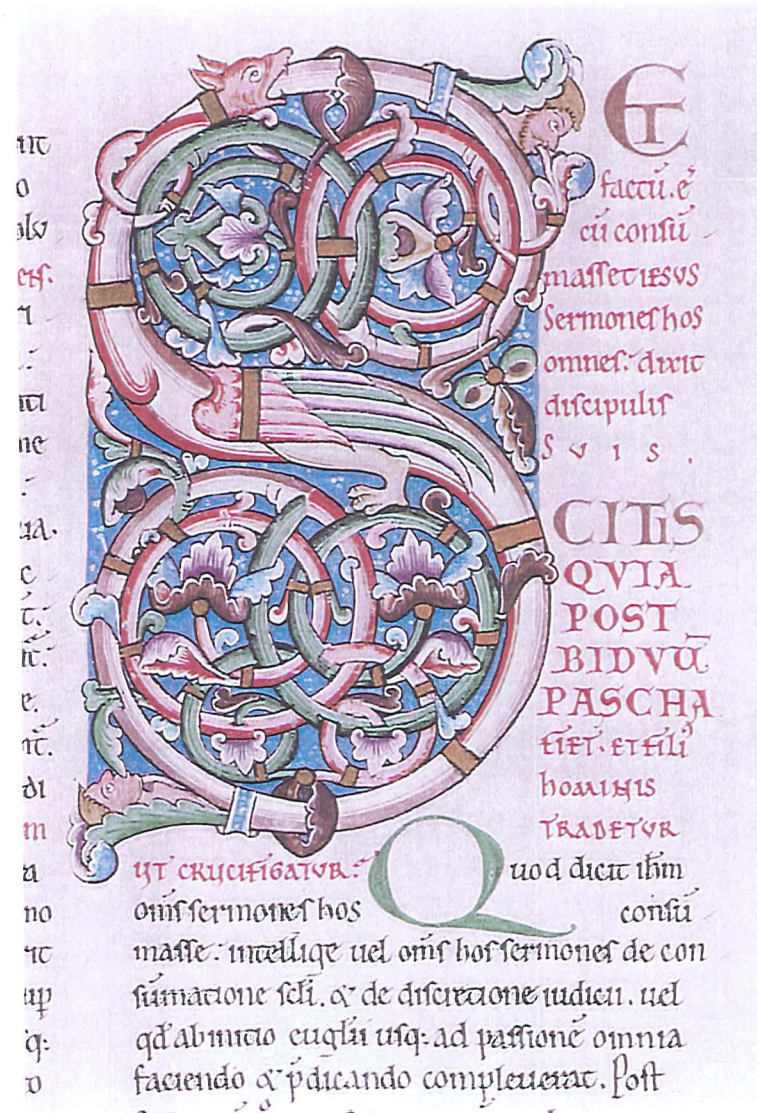 ET
factū. ē
cū consū
masset IESVS
Sermones hos
omnes. dixit
discipulis
SVIS.
SCITIS
QVIA
POST
BIDVŪ
PASCHA
FIET. ET FILI9
HOMINIS
TRADETVR
VT CRVCIFIGATVR.
Quod dicit ihm
om̄s sermones hos consū
masse. intellige uel om̄s hos sermones de con
sūmatione scl̄i. & de discretione iudicii. uel
qd̄ ab initio euglii usq: ad passionē omnia
faciendo & p̄dicando compleuerat. Post